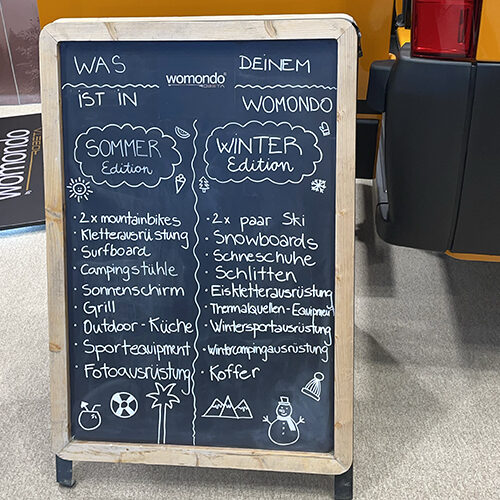 WAS womondo DEINEM
IST IN WOMONDO
SOMMER
Edition
· 2x mountainbikes
· Kletterausrüstung
· Surfboard
· Campingstühle
· Sonnenschirm
· Grill
· Outdoor-Küche
· Sportequipment
· Fotoausrüstung
WINTER
Edition
· 2x paar Ski
· Snowboards
· Schneschuhe
· Schlitten
· Eiskletterausrüstung
· Thermalquellen-Equipment
· Wintersportausrüstung
· Wintercampingausrüstung
· Koffer
womondo